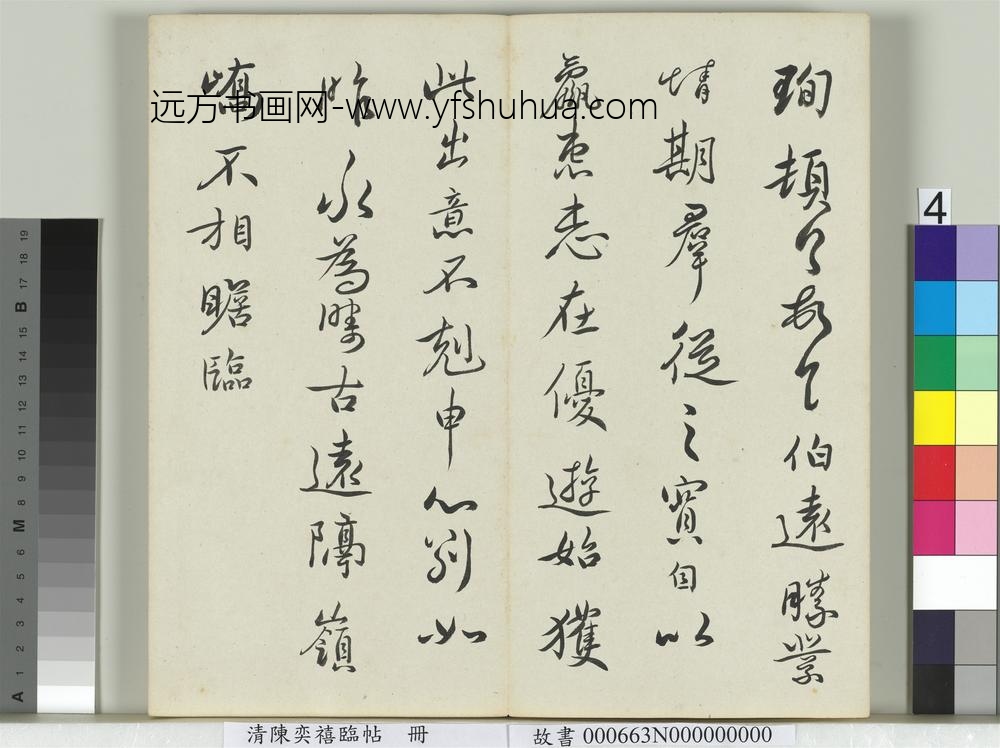 珣頓首頓首伯遠勝業
情期羣從之寶自以
羸患志在優遊始獲
此出意不剋申分別如
昨永為疇古遠隔嶺
嶠不相瞻臨
远方书画网-www.yfshuhua.com
4
清陳奕禧臨帖 冊
故書 000663N000000000
A 1 2 3 4 5 6 M 8 9 10 11 12 13 14 15 B 17 18 19